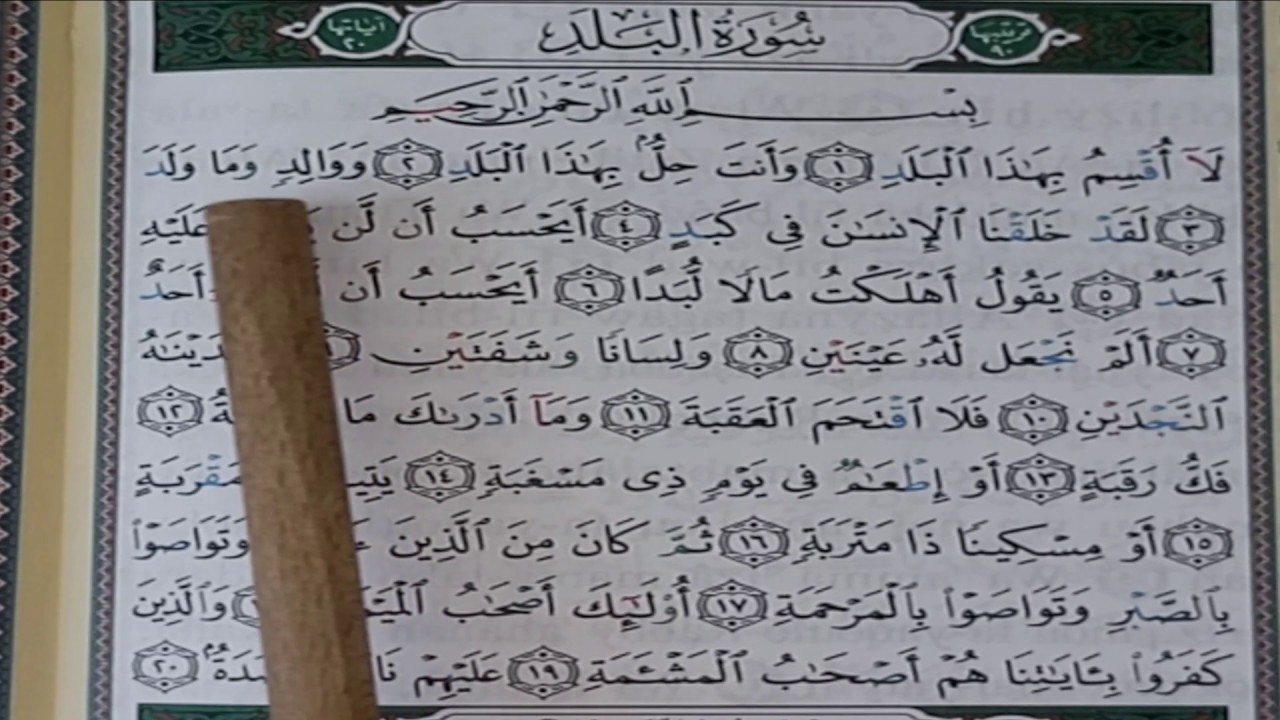 ترتيبها ٩٠ سُورَةُ البَلَدِ آياتها ٢٠
بِسْمِ ٱللَّهِ ٱلرَّحْمَٰنِ ٱلرَّحِيمِ
لَآ أُقْسِمُ بِهَٰذَا ٱلْبَلَدِ ١ وَأَنتَ حِلٌّۢ بِهَٰذَا ٱلْبَلَدِ ٢ وَوَالِدٍ وَمَا وَلَدَ
٣ لَقَدْ خَلَقْنَا ٱلْإِنسَٰنَ فِى كَبَدٍ ٤ أَيَحْسَبُ أَن لَّن عَلَيْهِ
أَحَدٌ ٥ يَقُولُ أَهْلَكْتُ مَالًا لُّبَدًا ٦ أَيَحْسَبُ أَن أَحَدٌ
٧ أَلَمْ نَجْعَل لَّهُۥ عَيْنَيْنِ ٨ وَلِسَانًا وَشَفَتَيْنِ
ٱلنَّجْدَيْنِ ١٠ فَلَا ٱقْتَحَمَ ٱلْعَقَبَةَ ١١ وَمَآ أَدْرَىٰكَ مَا ١٢
فَكُّ رَقَبَةٍ ١٣ أَوْ إِطْعَٰمٌ فِى يَوْمٍ ذِى مَسْغَبَةٍ ١٤ مَقْرَبَةٍ
١٥ أَوْ مِسْكِينًا ذَا مَتْرَبَةٍ ١٦ ثُمَّ كَانَ مِنَ ٱلَّذِينَ وَتَوَاصَوْا۟
بِٱلصَّبْرِ وَتَوَاصَوْا۟ بِٱلْمَرْحَمَةِ ١٧ أُو۟لَٰٓئِكَ أَصْحَٰبُ وَٱلَّذِينَ
كَفَرُوا۟ بِـَٔايَٰتِنَا هُمْ أَصْحَٰبُ ٱلْمَشْـَٔمَةِ ١٩ عَلَيْهِمْ ٢٠